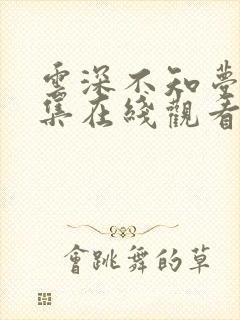 雲深不知夢
集在綫觀看
會跳舞的草